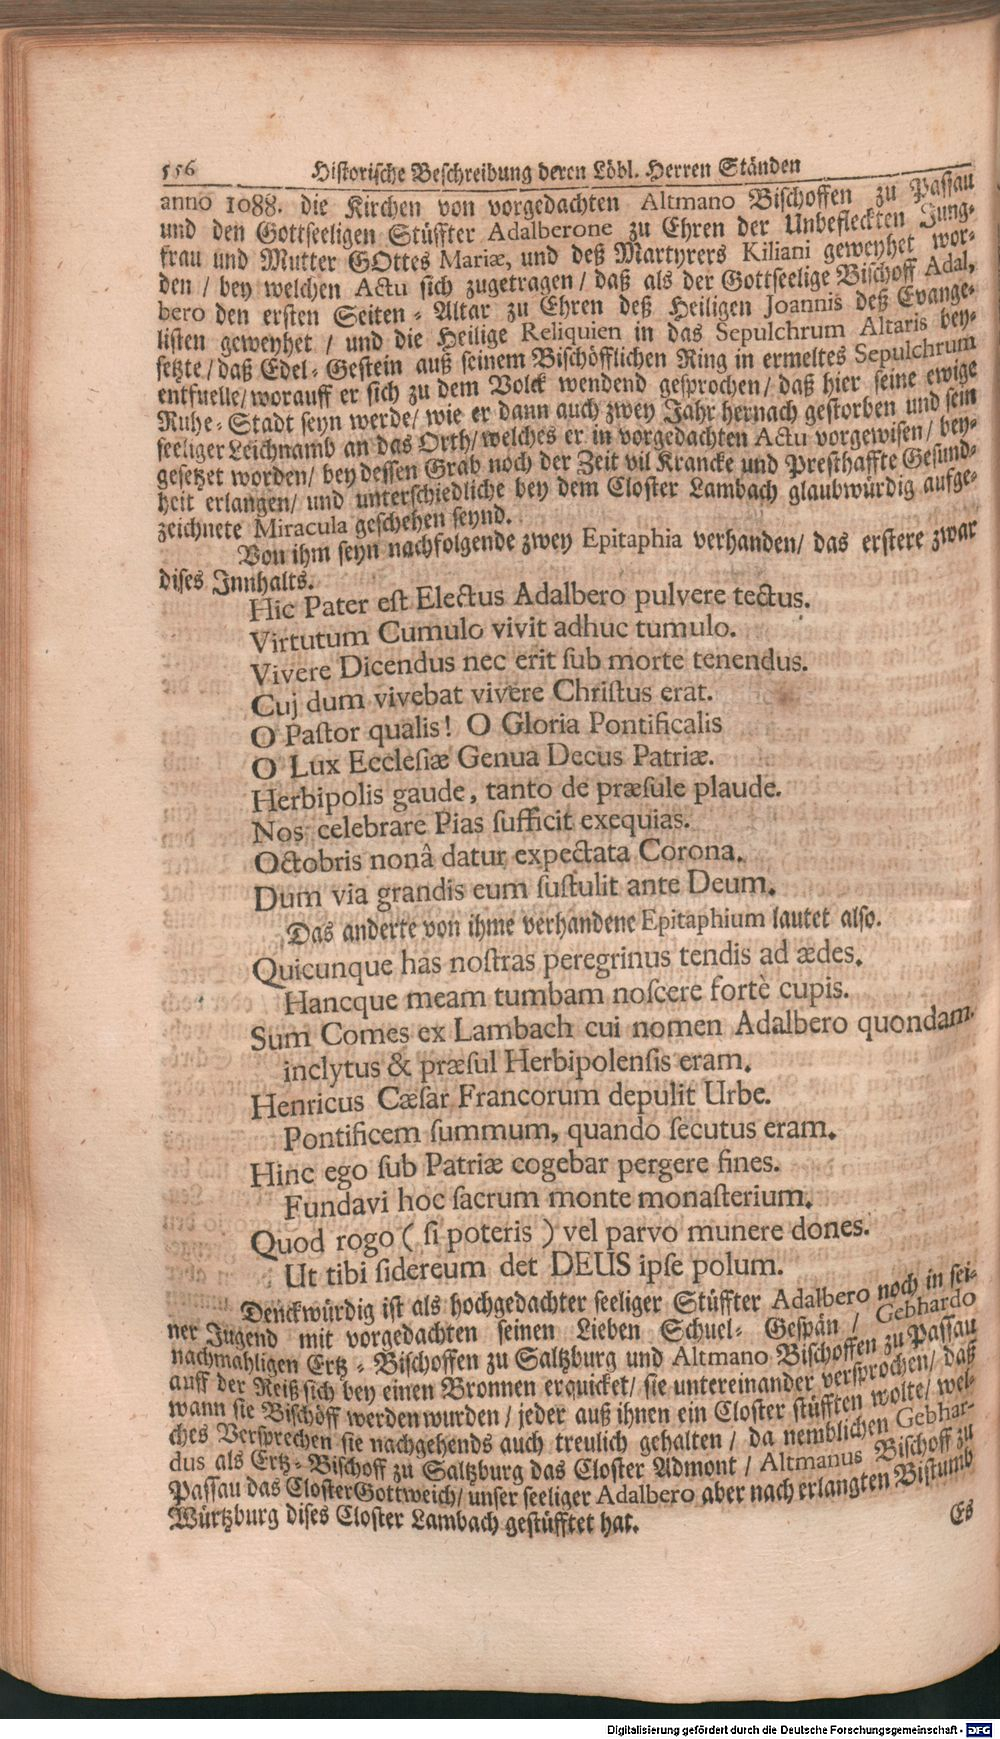 556 Historische Beschreibung deren Löbl. Herren Ständen
anno 1088. die Kirchen von vorgedachten Altmano Bischoffen zu Passau
und den Gottseeligen Stüffter Adalberone zu Ehren der Unbefleckten Jung-
frau und Mutter GOttes Mariæ, und deß Martyrers Kiliani geweyhet wor-
den / bey welchen Actu sich zugetragen / daß als der Gottseelige Bischoff Adal-
bero den ersten Seiten-Altar zu Ehren deß Heiligen Joannis deß Evange-
listen geweyhet / und die Heilige Reliquien in das Sepulchrum Altaris bey-
setzte / daß Edel-Gestein auß seinem Bischöfflichen Ring in ermeltes Sepulchrum
entfuelle / worauff er sich zu dem Volck wendend gesprochen / daß hier seine ewige
Ruhe-Stadt seyn werde / wie er dann auch zwey Jahr hernach gestorben und sein
seeliger Leichnamb an das Orth / welches er in vorgedachten Actu vorgewisen / bey-
gesetzet worden / bey dessen Grab noch der Zeit vil Krancke und Presthaffte Gesund-
heit erlangen / und unterschiedliche bey dem Closter Lambach glaubwürdig aufge-
zeichnete Miracula geschehen seynd.
Von ihm seyn nachfolgende zwey Epitaphia verhanden / das erstere zwar
dises Innhalts.
Hic Pater est Electus Adalbero pulvere tectus.
Virtutum Cumulo vivit adhuc tumulo.
Vivere Dicendus nec erit sub morte tenendus.
Cuj dum vivebat vivere Christus erat.
O Pastor qualis! O Gloria Pontificalis
O Lux Ecclesiæ Genua Decus Patriæ.
Herbipolis gaude, tanto de præsule plaude.
Nos celebrare Pias sufficit exequias.
Octobris nonâ datur expectata Corona.
Dum via grandis eum sustulit ante Deum.
Das anderte von ihme verhandene Epitaphium lautet also.
Quicunque has nostras peregrinus tendis ad ædes.
Hancque meam tumbam noscere fortè cupis.
Sum Comes ex Lambach cui nomen Adalbero quondam.
inclytus & præsul Herbipolensis eram.
Henricus Cæsar Francorum depulit Urbe.
Pontificem summum, quando secutus eram.
Hinc ego sub Patriæ cogebar pergere fines.
Fundavi hoc sacrum monte monasterium.
Quod rogo ( si poteris ) vel parvo munere dones.
Ut tibi sidereum det DEUS ipse polum.
Denckwürdig ist als hochgedachter seeliger Stüffter Adalbero noch in sei-
ner Jugend mit vorgedachten seinen Lieben Schuel-Gespän / Gebhardo
nachmahligen Ertz-Bischoffen zu Saltzburg und Altmano Bischoffen zu Passau
auff der Reiß sich bey einen Bronnen erquicket / sie untereinander versprochen / daß
wann sie Bischöff werden wurden / jeder auß ihnen ein Closter stüfften wolte / wel-
ches Versprechen sie nachgehends auch treulich gehalten / da nemblichen Gebhar-
dus als Ertz-Bischoff zu Saltzburg das Closter Admont / Altmanus Bischoff zu
Passau das Closter Gottweich / unser seeliger Adalbero aber nach erlangten Bistumb
Würtzburg dises Closter Lambach gestüfftet hat.
Es
Digitalisierung gefördert durch die Deutsche Forschungsgemeinschaft - DFG